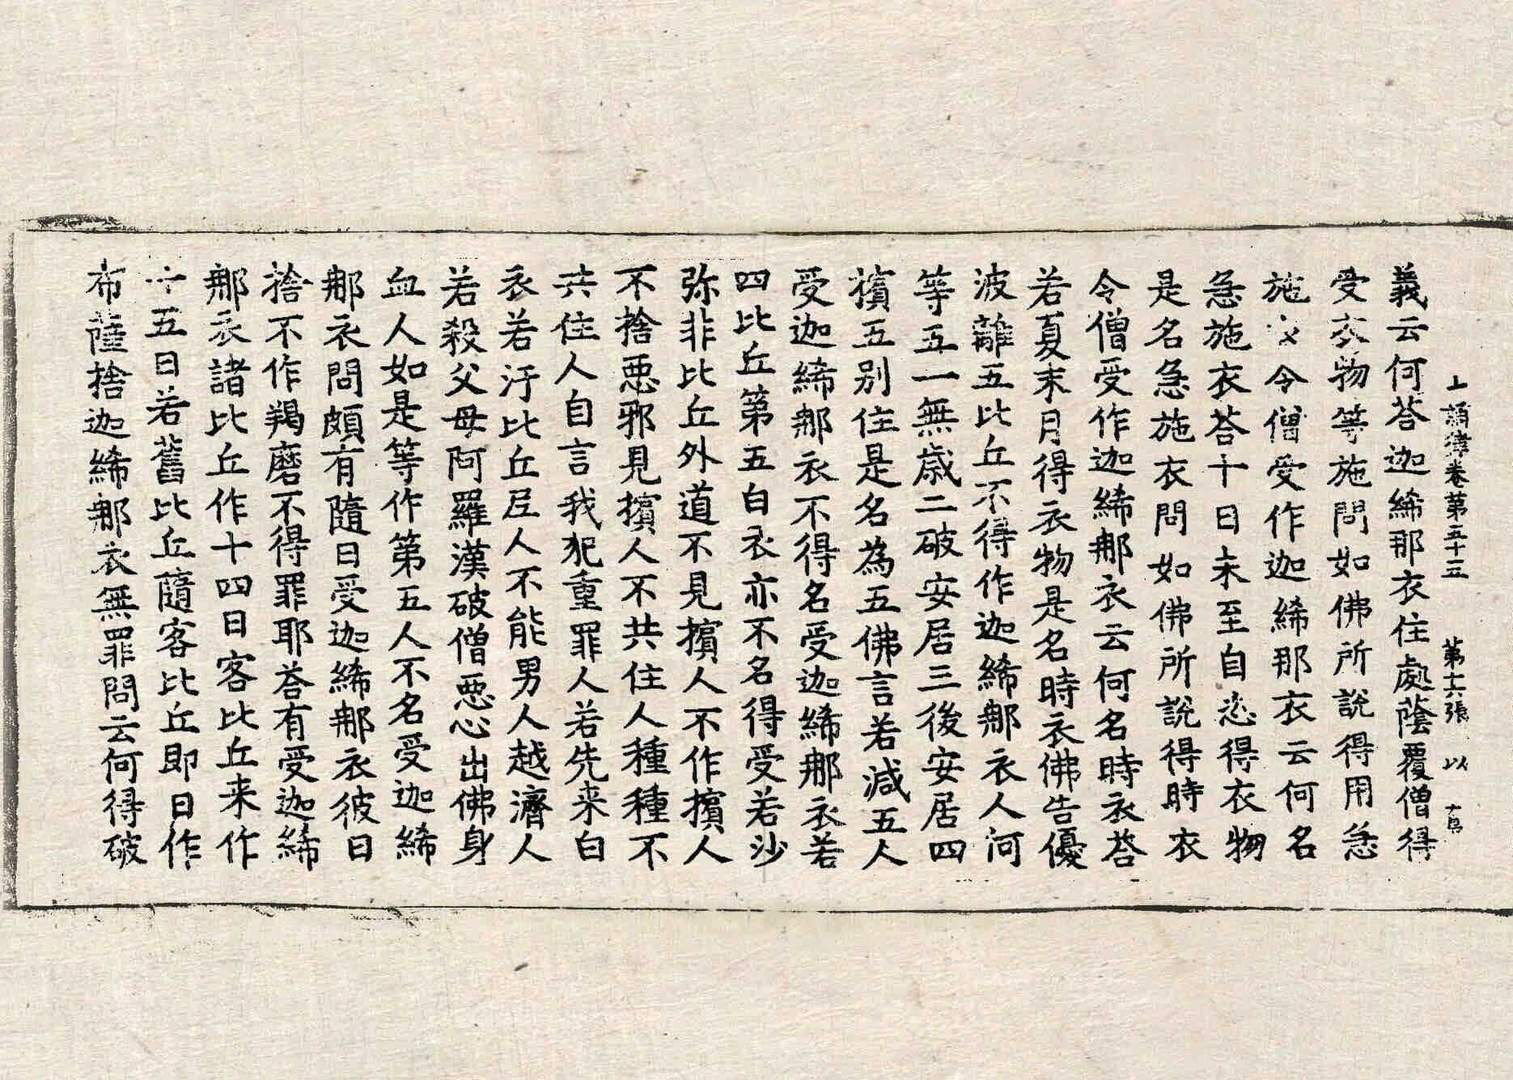 十誦律卷第五十五 第十六張 以
義云何荅迦絺那衣住處蔭覆僧得
受衣物等施問如佛所說得用急
施衣令僧受作迦絺那衣云何名
急施衣荅十日未至自恣得衣物
是名急施衣問如佛所說得時衣
令僧受作迦絺那衣云何名時衣荅
若夏末月得衣物是名時衣佛告優
波離五比丘不得作迦絺那衣人何
等五一無歲二破安居三後安居四
擯五別住是名為五佛言若減五人
受迦絺那衣不得名受迦絺那衣若
四比丘第五白衣亦不名得受若沙
弥非比丘外道不見擯人不作擯人
不捨惡邪見擯人不共住人種種不
共住人自言我犯重罪人若先来白
衣若汙比丘尼人不能男人越濟人
若殺父母阿羅漢破僧惡心出佛身
血人如是等作第五人不名受迦絺
那衣問頗有隨日受迦絺那衣彼日
捨不作羯磨不得罪耶荅有受迦絺
那衣諸比丘作十四日客比丘来作
十五日若舊比丘隨客比丘即日作
布薩捨迦絺那衣無罪問云何得破